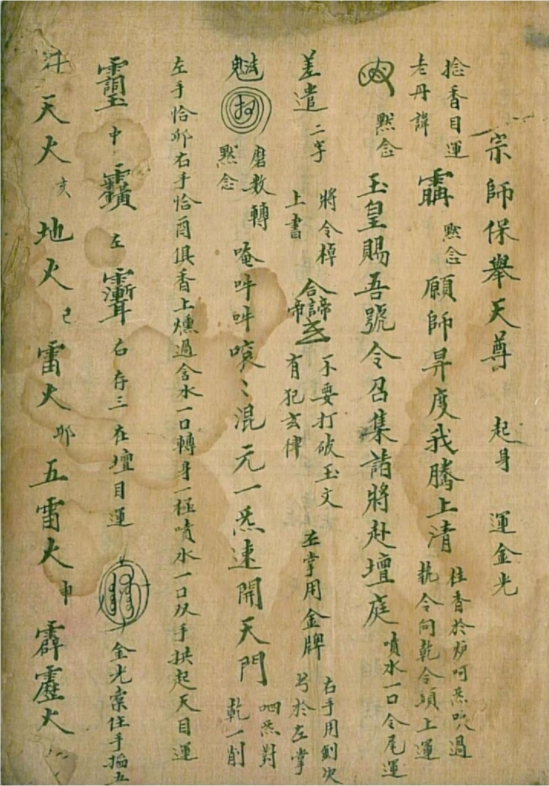 宗師保舉天尊 起身 運金光
捻香目運
老丹諱 默念 願師昇度我騰上清 炷香於炉呵炁吹過
執令向乾令頭上運
默念 玉皇賜吾號令召集諸將赴壇庭 噴水一口令尾運
差遣 二字 將令棹
上書 不要打破玉文
有犯玄律 左掌用金牌 右手用劍次
号於左掌
磨教轉
默念 唵吽吽 混元一炁速開天門 呬炁對
乾一削
左手恰卯右手恰酉俱香上燻過含水一口轉身一極噴水一口双手拱起天目運
中 左 右 存三在壇目運 金光案住手掐五
天火 亥 地火 巳 雷火 卯 五雷火 申 霹靂火